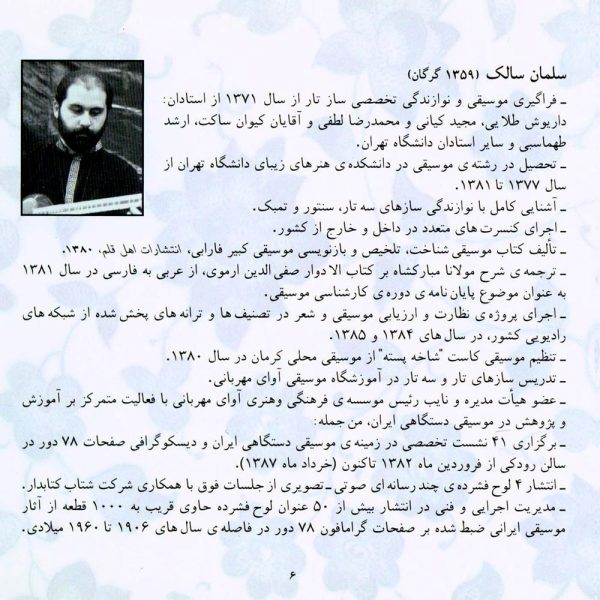 سلمان سالک (۱۳۵۹ گرگان)
ـ فراگیری موسیقی و نوازندگی تخصصی ساز تار از سال ۱۳۷۱ از استادان:
داریوش طلایی، مجید کیانی و محمدرضا لطفی و آقایان کیوان ساکت، ارشد
طهماسبی و سایر استادان دانشگاه تهران.
ـ تحصیل در رشته ی موسیقی در دانشکده ی هنرهای زیبای دانشگاه تهران از
سال ۱۳۷۷ تا ۱۳۸۱.
ـ آشنایی کامل با نوازندگی سازهای سه تار، سنتور و تمبک.
ـ اجرای کنسرت های متعدد در داخل و خارج از کشور.
ـ تألیف کتاب موسیقی شناخت، تلخیص و بازنویسی موسیقی کبیر فارابی، انتشارات اهل قلم، ۱۳۸۰.
ـ ترجمه ی شرح مولانا مبارکشاه بر کتاب الا دوار صفی الدین ارموی، از عربی به فارسی در سال ۱۳۸۱
به عنوان موضوع پایان نامه ی دوره ی کارشناسی موسیقی.
ـ اجرای پروژه ی نظارت و ارزیابی موسیقی و شعر در تصنیف ها و ترانه های پخش شده از شبکه های
رادیویی کشور، در سال های ۱۳۸۴ و ۱۳۸۵.
ـ تنظیم موسیقی کاست "شاخه پسته" از موسیقی محلی کرمان در سال ۱۳۸۰.
ـ تدریس سازهای تار و سه تار در آموزشگاه موسیقی آوای مهربانی.
ـ عضو هیأت مدیره و نایب رئیس موسسه ی فرهنگی وهنری آوای مهربانی با فعالیت متمرکز بر آموزش
و پژوهش در موسیقی دستگاهی ایران، من جمله:
ـ برگزاری ۴۱ نشست تخصصی در زمینه ی موسیقی دستگاهی ایران و دیسکوگرافی صفحات ۷۸ دور در
سالن رودکی از فروردین ماه ۱۳۸۲ تاکنون (خرداد ماه ۱۳۸۷).
ـ انتشار ۴ لوح فشرده ی چند رسانه ای صوتی ـ تصویری از جلسات فوق با همکاری شرکت شتاب کتابدار.
ـ مدیریت اجرایی و فنی در انتشار بیش از ۵۰ عنوان لوح فشرده حاوی قریب به ۱۰۰۰ قطعه از آثار
موسیقی ایرانی ضبط شده بر صفحات گرامافون ۷۸ دور در فاصله ی سال های ۱۹۰۶ تا ۱۹۶۰ میلادی.
۶